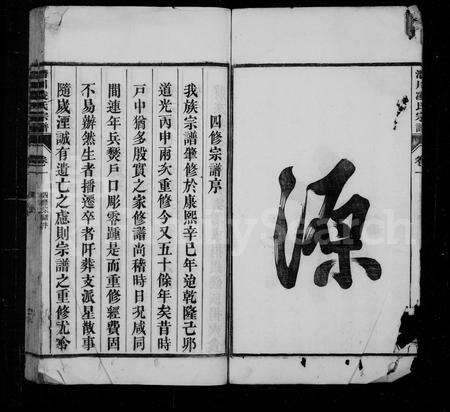 源
四修宗譜序
我族宗譜肇修於康熙辛巳年迨乾隆己卯
道光丙申兩次重修今又五十餘年矣昔時
戸中猶多殷實之家修譜尚稽時日況咸同
間連年兵燹戸口彫零踵是而重修經費固
不易辦然生者播遷卒者阡葬支派星散事
隨歲湮誠有遺亡之慮則宗譜之重修尤
氏宗譜
卷一
FamilySearch